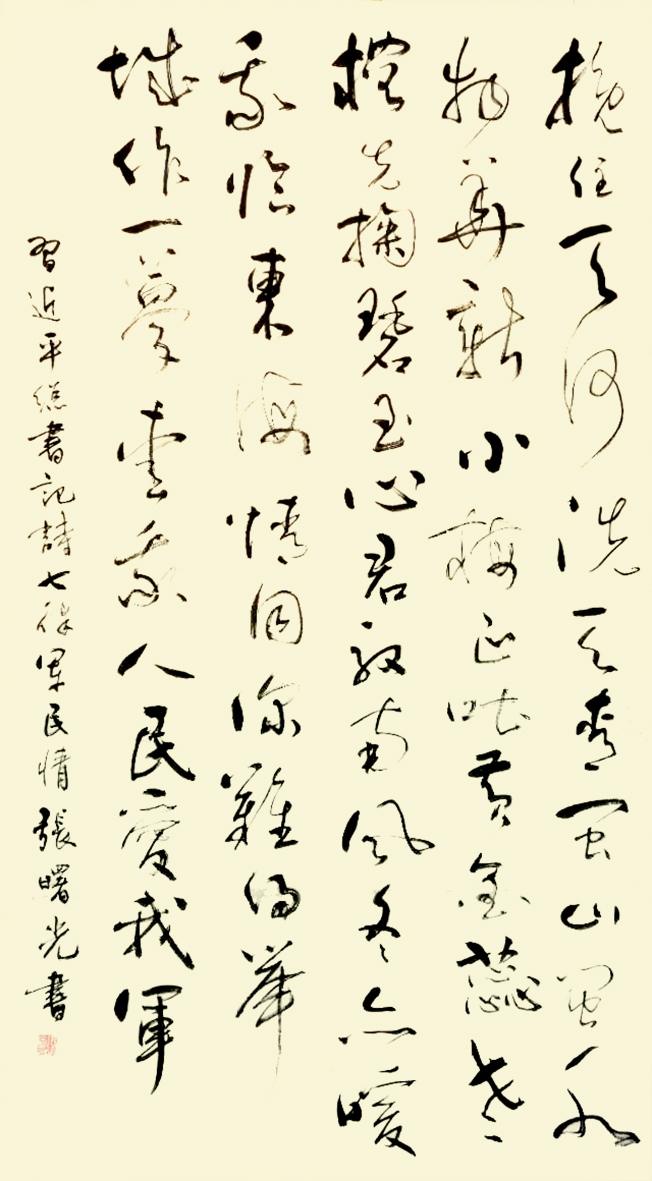 挽住天河洗天青閩山閩水
物華新小梅正吐黄金蕊老
榕先掬碧玉心君馭南風冬亦暖
我臨東海情同深難得舉
城作一愛我人民愛我軍
習近平總書記詩七律軍民情張曙光書